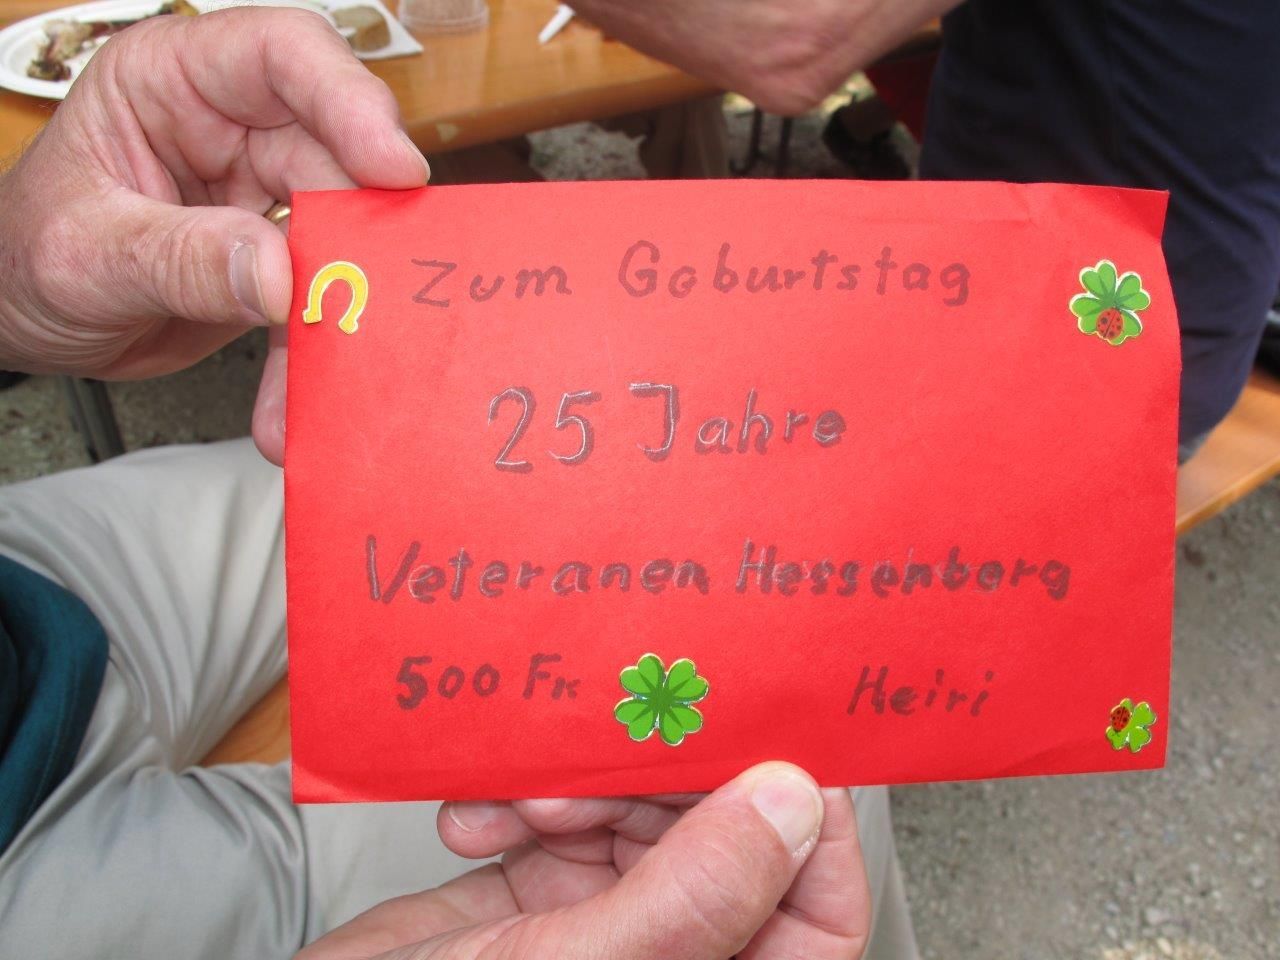 Zum Geburtstag
25 Jahre
Veteranen Hessenberg
500 Fr
Heiri